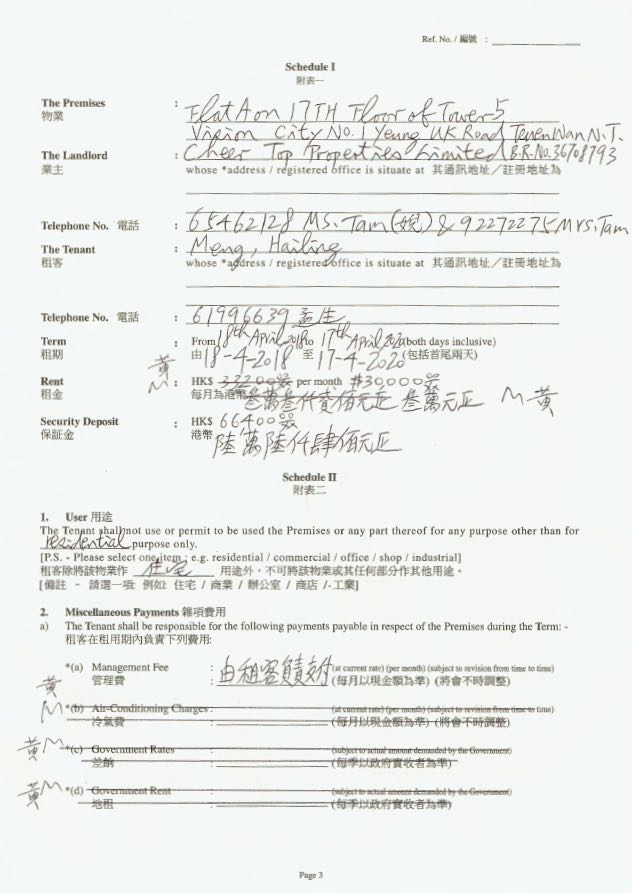 Ref. No. / 編號 :
Schedule I
附表一
The Premises : Flat A on 17TH Floor of Tower 5
物業 Vision City No. 1 Yeung UK Road Tsuen Wan N.T.
The Landlord : Cheer Top Properties Limited (B.R.No.36708793
業主 whose *address / registered office is situate at 其通訊地址／註冊地址為
Telephone No. 電話 : 65462128 Ms. Tam (婗) & 92272275 Mrs. Tam
The Tenant : Meng, Hailing
租客 whose *address / registered office is situate at 其通訊地址／註冊地址為
Telephone No. 電話 : 61996639 孟生
Term : From 18th April 2018 to 17th April 2020 (both days inclusive)
租期 由 18-4-2018 至 17-4-2020 (包括首尾兩天)
黃
Rent M : HK$ 33200 per month $30,000
租金 每月為港幣 叁萬叁仟貳佰元正 叁萬元正 M 黃
Security Deposit : HK$ 66400
保証金 港幣 陸萬陸仟肆佰元正
Schedule II
附表二
1. User 用途
The Tenant shall not use or permit to be used the Premises or any part thereof for any purpose other than for
residential purpose only.
[P.S. - Please select one item ; e.g. residential / commercial / office / shop / industrial]
租客除將該物業作 住宅 用途外，不可將該物業或其任何部分作其他用途。
[備註 － 請選一項: 例如: 住宅 / 商業 / 辦公室 / 商店 /·工業]
2. Miscellaneous Payments 雜項費用
a) The Tenant shall be responsible for the following payments payable in respect of the Premises during the Term: -
租客在租用期內負責下列費用:
*(a) Management Fee : 由租客負責支付 (at current rate) (per month) (subject to revision from time to time)
管理費 (每月以現金額為準) (將會不時調整)
黃
M *(b) Air-Conditioning Charges : (at current rate) (per month) (subject to revision from time to time)
冷氣費 (每月以現金額為準) (將會不時調整)
黃 M *(c) Government Rates : (subject to actual amount demanded by the Government)
差餉 (每季以政府實收者為準)
黃 M *(d) Government Rent : (subject to actual amount demanded by the Government)
地租 (每季以政府實收者為準)
Page 3